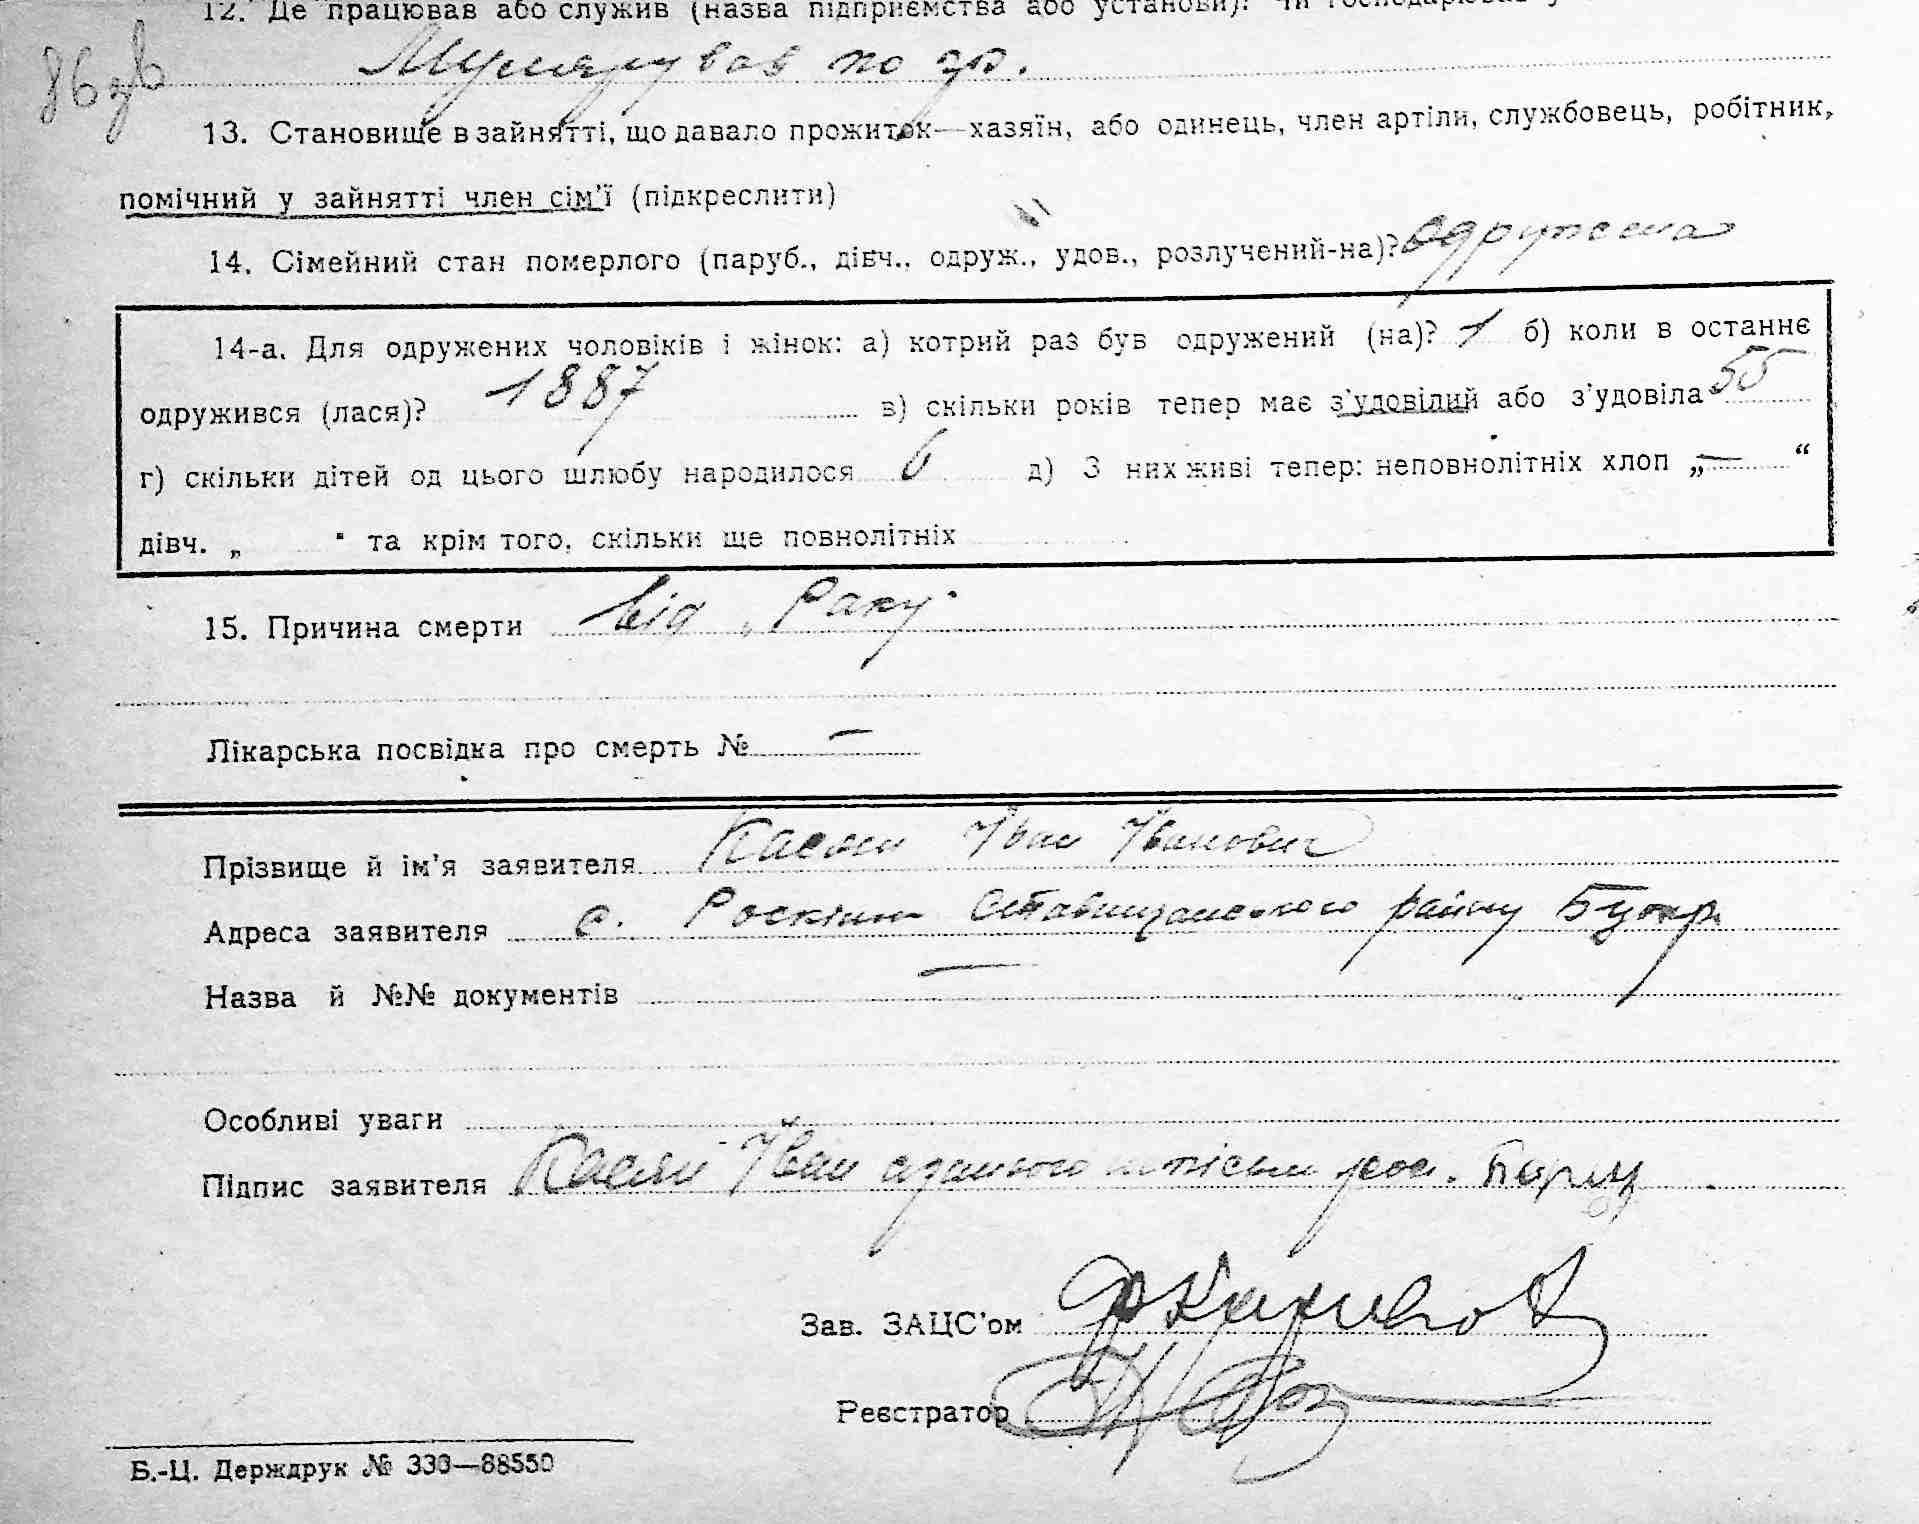 12. Де працював або служив (назва підприємства або установи). Чи господарював у
Мулярував по
13. Становище в зайнятті, що давало прожиток—хазяїн, або одинець, член артіли, службовець, робітник,
помічний у зайнятті член сім'ї (підкреслити)
14. Сімейний стан померлого (паруб., дівч., одруж., удов., розлучений-на)? одружена
14-а. Для одружених чоловіків і жінок: а) котрий раз був одружений (на)? 1 б) коли в останнє
одружився (лася)? 1887 в) скільки років тепер має з'удовілий або з'удовіла 55
г) скільки дітей од цього шлюбу народилося 6 д) З них живі тепер: неповнолітніх хлоп „—“
дівч. „ " та крім того, скільки ще повнолітніх
15. Причина смерти від „Раку"
Лікарська посвідка про смерть № —
Прізвище й ім'я заявителя Касян Іван Іванович
Адреса заявителя с. Ставищанського району
Назва й №№ документів —
Особливі уваги
Підпис заявителя Касян Іван
Зав. ЗАЦС'ом
Реєстратор
Б.-Ц. Держдрук № 330—88550